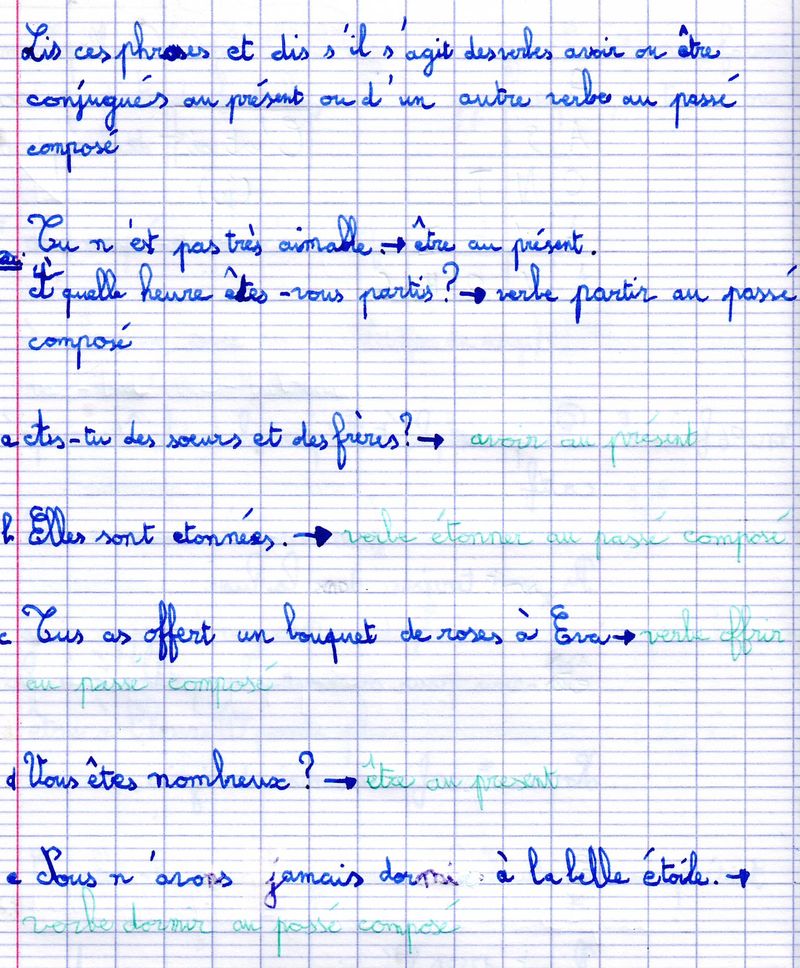 Lis ces phrases et dis s'il s'agit des verbes avoir ou être
conjugués au présent ou d'un autre verbe au passé
composé
Tu n'est pas très aimable. → être au présent.
ex:
A quelle heure êtes-vous partis? → verbe partir au passé
composé
a As-tu des soeurs et des frères? → avoir au présent
b Elles sont etonnées. → verbe étonner au passé composé
c Tus as offert un bouquet de roses à Eva → verbe offrir
au passé composé
d Vous êtes nombreux? → être au present
e Nous n'avons jamais dormi à la belle étoile. →
verbe dormir au passé composé